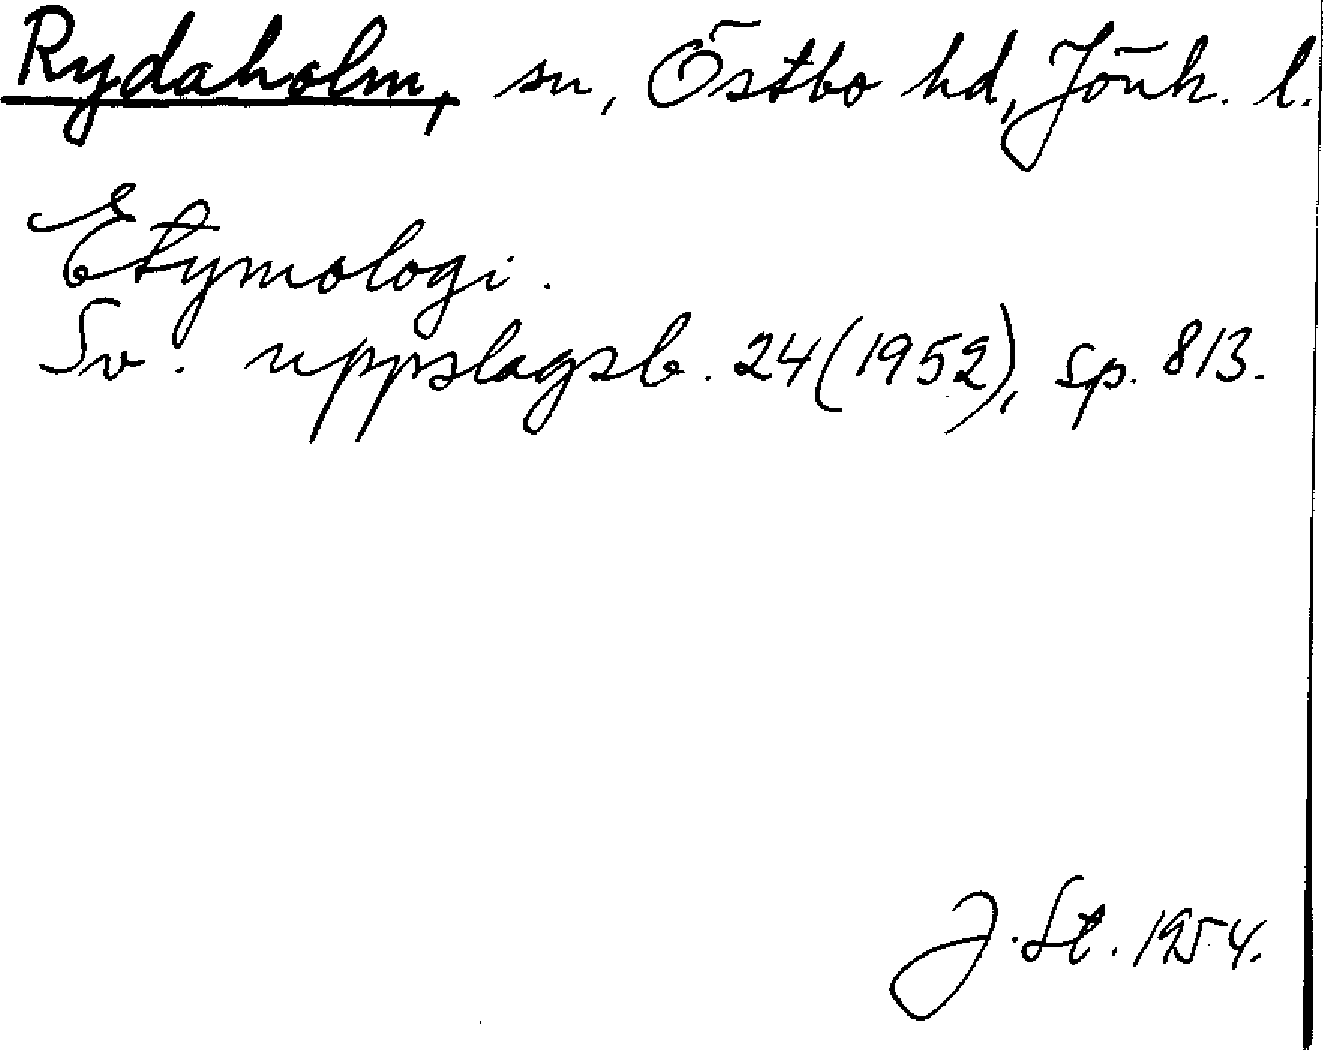 Rydaholm, sn, Östbo hd, Jönk. l.
Etymologi.
Sv. uppslagsb. 24 (1952), sp. 813.
J. St. 1954.